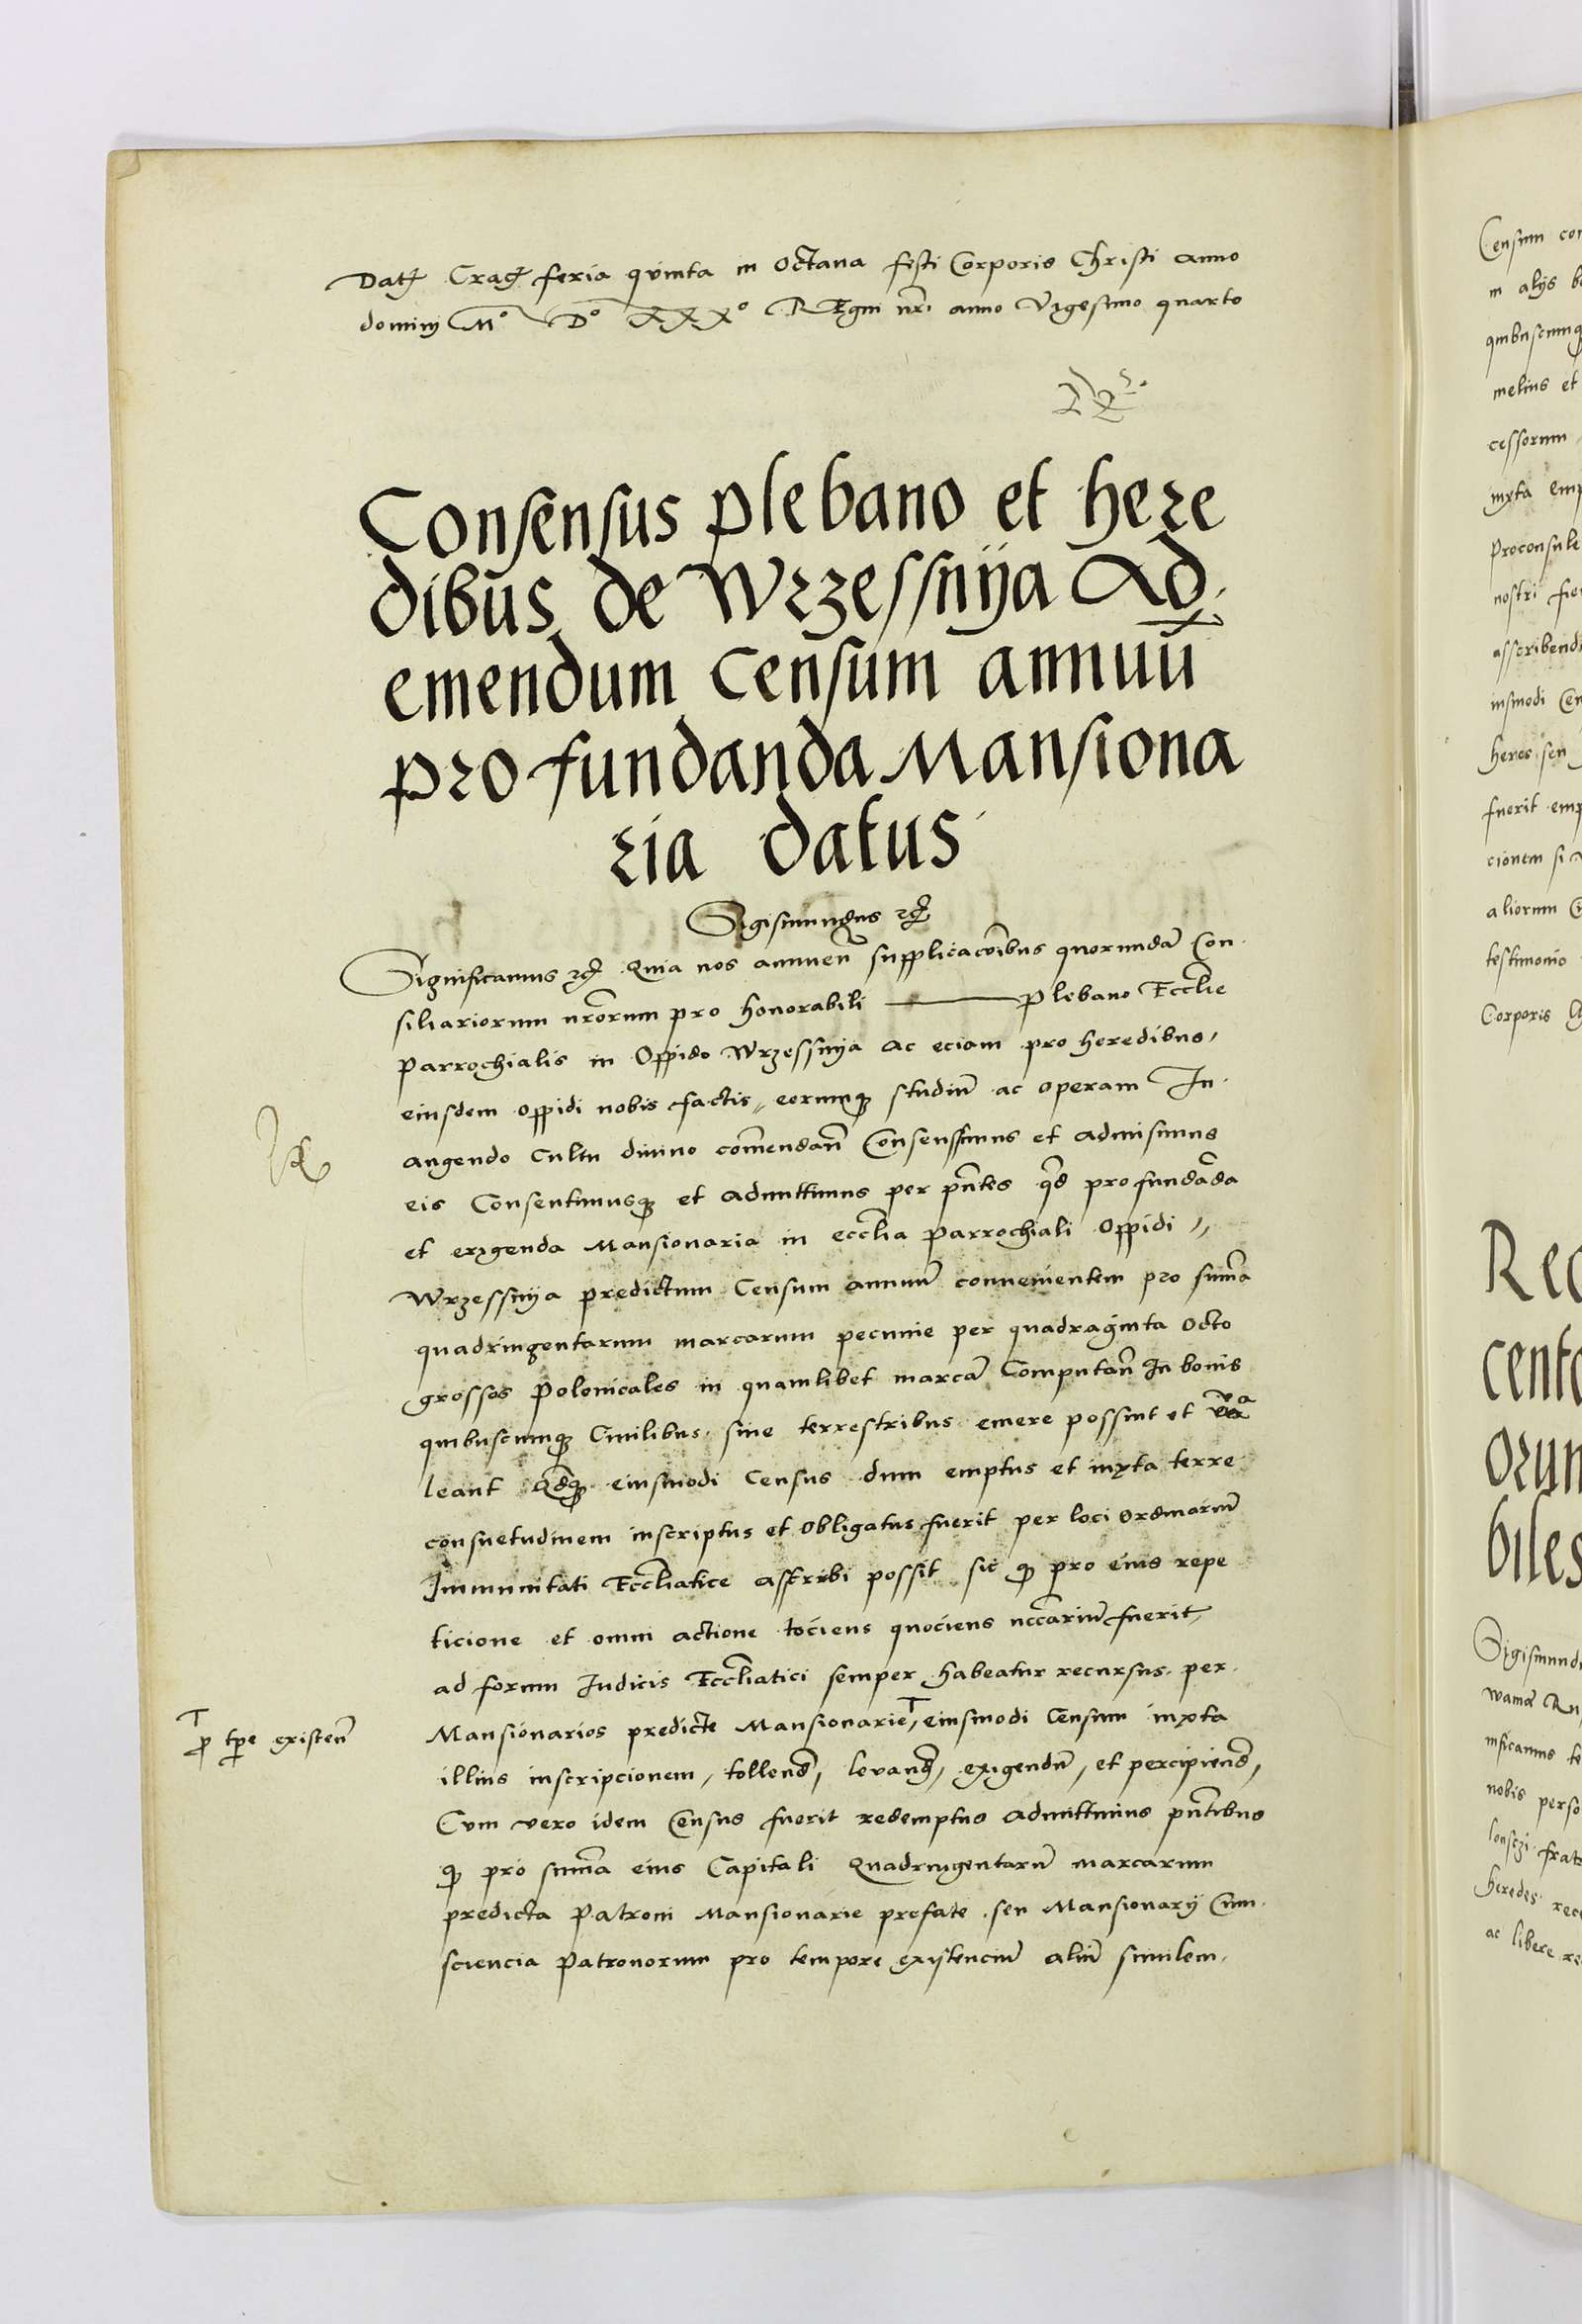 Datꝭ Cracꝭ feria quinta in Octava festi Corporis Christi anno
dominj Mº Dº XXXº Regni nrı̃ anno Vigesimo quarto
Consensus plebano et here
dibus de Wrzessnya Ad
emendum censum annuũ
pro fundanda Mansiona
ria datus
Sigismundus ꝛcꝭ
Significamus ꝛcꝭ Quia nos annuen̄ supplicacoı̃bus quorundā Con
siliariorum nrõrum pro honorabili ——— plebano Eccl̃ie
parrochialis in Oppido Wrzessnya ac eciam pro heredibus,
eiusdem oppidi nobis factis, eorumqꝫ studiũ ac operam In
augendo cultu divino com̃endañ Consensimus et admisimus
eis Consentimusqꝫ et admittimus per pñtes qđ pro fundãda
et erigenda Mansionaria in eccl̃ia parrochiali Oppidi
Wrzessnya predictum Censum annuũ convenientem pro sum̃a
quadringentarum marcarum pecunie per quadraginta octo
grossos Polonicales in quamlibet marcã Computañ In bonis
quibuscumqꝫ Civilibus sive terrestribus emere possint et va
leant Qđqꝫ eiusmodi Census dum emptus et iuxta terre
consuetudinem inscriptus et obligatus fuerit per loci ordinariũ
Immunitati Eccl̃iatice ascribi possit sic qꝫ pro eius repe
ticione et omni actione tociens quociens ncc̃ariũ fuerit,
ad forum Iudicis Eccl̃iatici semper habeatur recursus per
Mansionarios predicte Mansionarie, eiusmodi Censum iuxta
ꝓ tꝑe existeñ
illius inscripcionem, tollenđ, levanđ, exigendũ, et percipienđ,
Cum vero idem Census fuerit redemptus admittimus pñtibus
qꝫ pro sum̃a eius Capitali Quadringentarũ marcarum
predicta Patroni Mansionarie prefate seu Mansionarij Cum
sciencia Patronorum pro tempore existenciũ aliũ similem
Censum
in alijs
melius et
cessorum
iuxta
nostri
Corporis
Rec
cent
orum
biles
nobis
heredes
ac libere